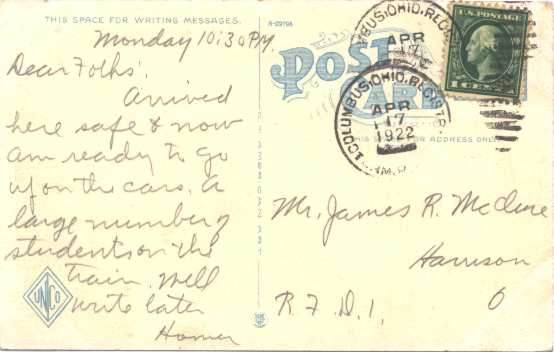 THIS SPACE FOR WRITING MESSAGES.
Monday 10:30 P.M.
Dear Folks:
Arrived
here safe & now
am ready to go
up on the cars. A
large number of
students on the
train. Will
write later
Homer
UNCo
POST
CARD
THIS SPACE FOR ADDRESS ONLY
COLUMBUS, OHIO, REG'STR.
APR
17
COLUMBUS, OHIO, REG'STR.
APR
17
1922
U.S. POSTAGE
1 CENT 1
Mr. James R. McClure
Harrison
R.F.D. 1,
O